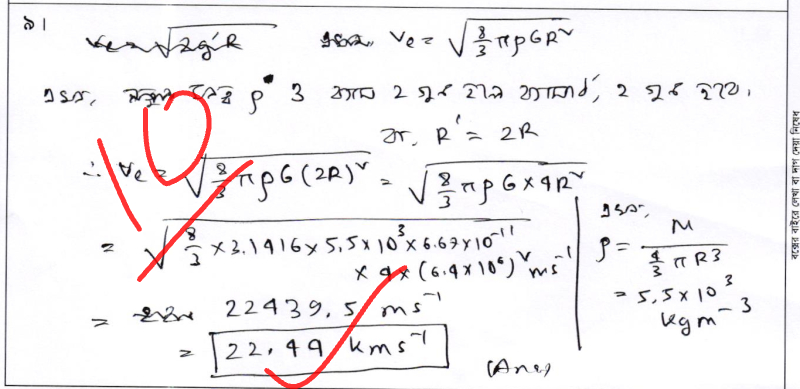 ৯।
এখন, Ve = √(8/3 πρGR²)
এখন, ρ ও ব্যাস ২ গুন হলে ব্যাসার্ধ, ২ গুন হবে।
বা, R' = 2R
10
∴ Ve = √(8/3 πρG(2R)²) = √(8/3 πρG×4R²)
= √(8/3 ×3.1416×5.5×10³×6.67×10⁻¹¹
×4×(6.4×10⁶)² ms⁻¹
= 22439.5 ms⁻¹
= 22.44 kms⁻¹
(Ans)
এখন,
ρ = M / (4/3 πR³)
= 5.5×10³
kgm⁻³
বক্সের বাইরে লেখা বা দাগ দেয়া নিষেধ